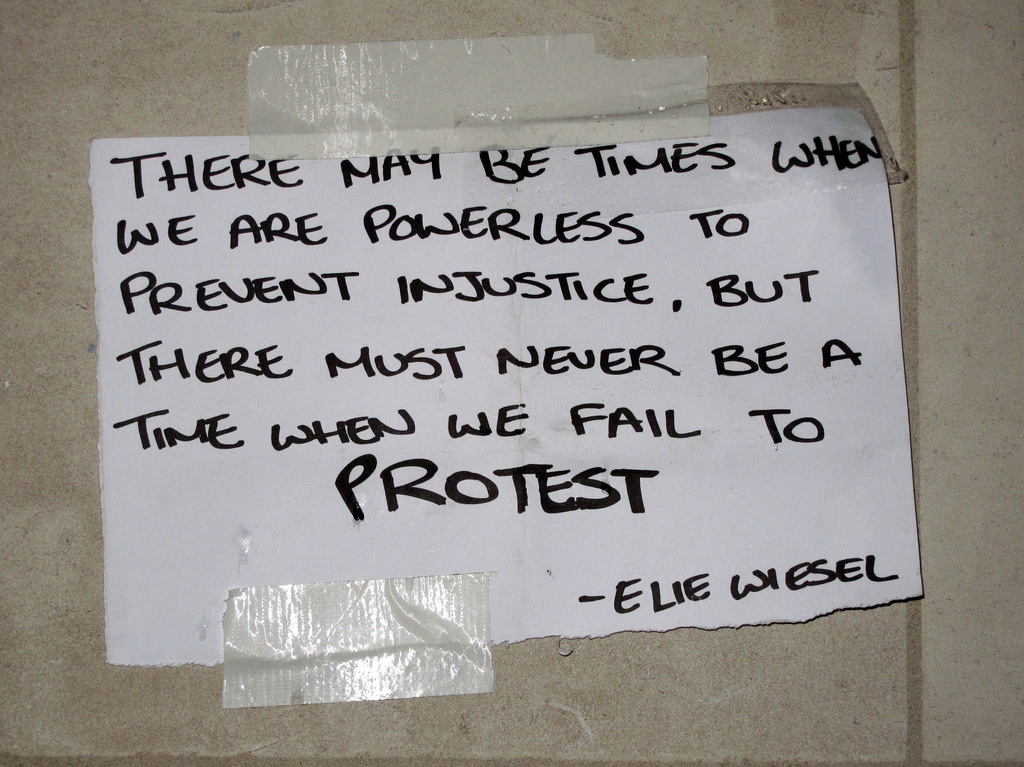 THERE MAY BE TIMES WHEN
WE ARE POWERLESS TO
PREVENT INJUSTICE, BUT
THERE MUST NEVER BE A
TIME WHEN WE FAIL TO
PROTEST
- ELIE WIESEL